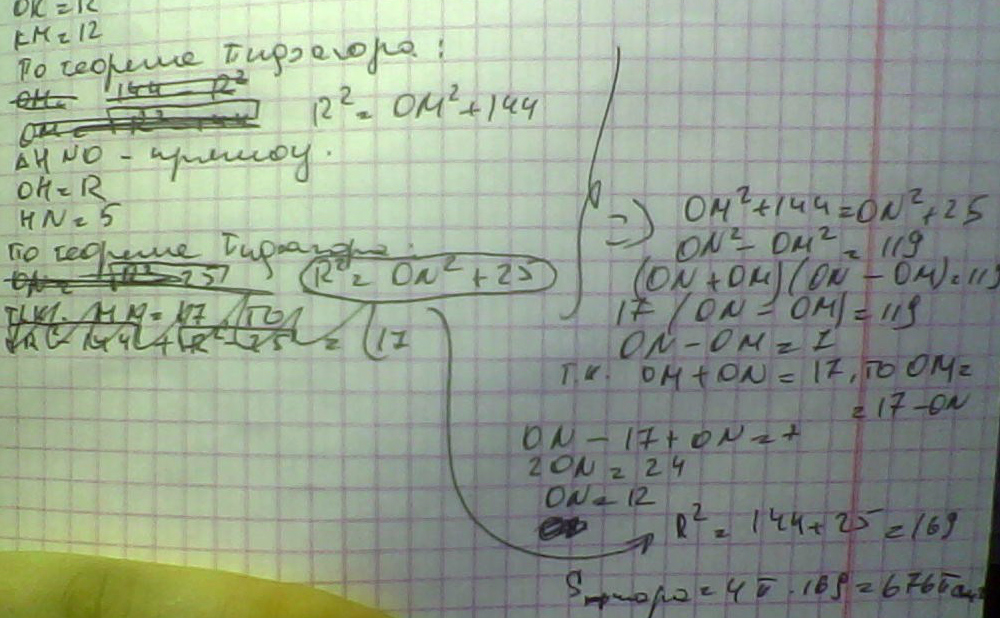 OK = R
KM = 12
По теореме Пифагора:
OM =
144 R²
OM =
R² = OM² + 144
ΔHNO - прямоу.
OH = R
HN = 5
По теореме Пифагора:
ON = R² - 25
R² = ON² + 25
т.к. MN = 17, то
= 17
=> OM² + 144 = ON² + 25
ON² - OM² = 119
(ON + OM)(ON - OM) = 119
17 (ON - OM) = 119
ON - OM = 7
т.к. OM + ON = 17, то OM =
= 17 - ON
ON - 17 + ON = 7
2ON = 24
ON = 12
R² = 144 + 25 = 169
= 4π · 169 = 676π